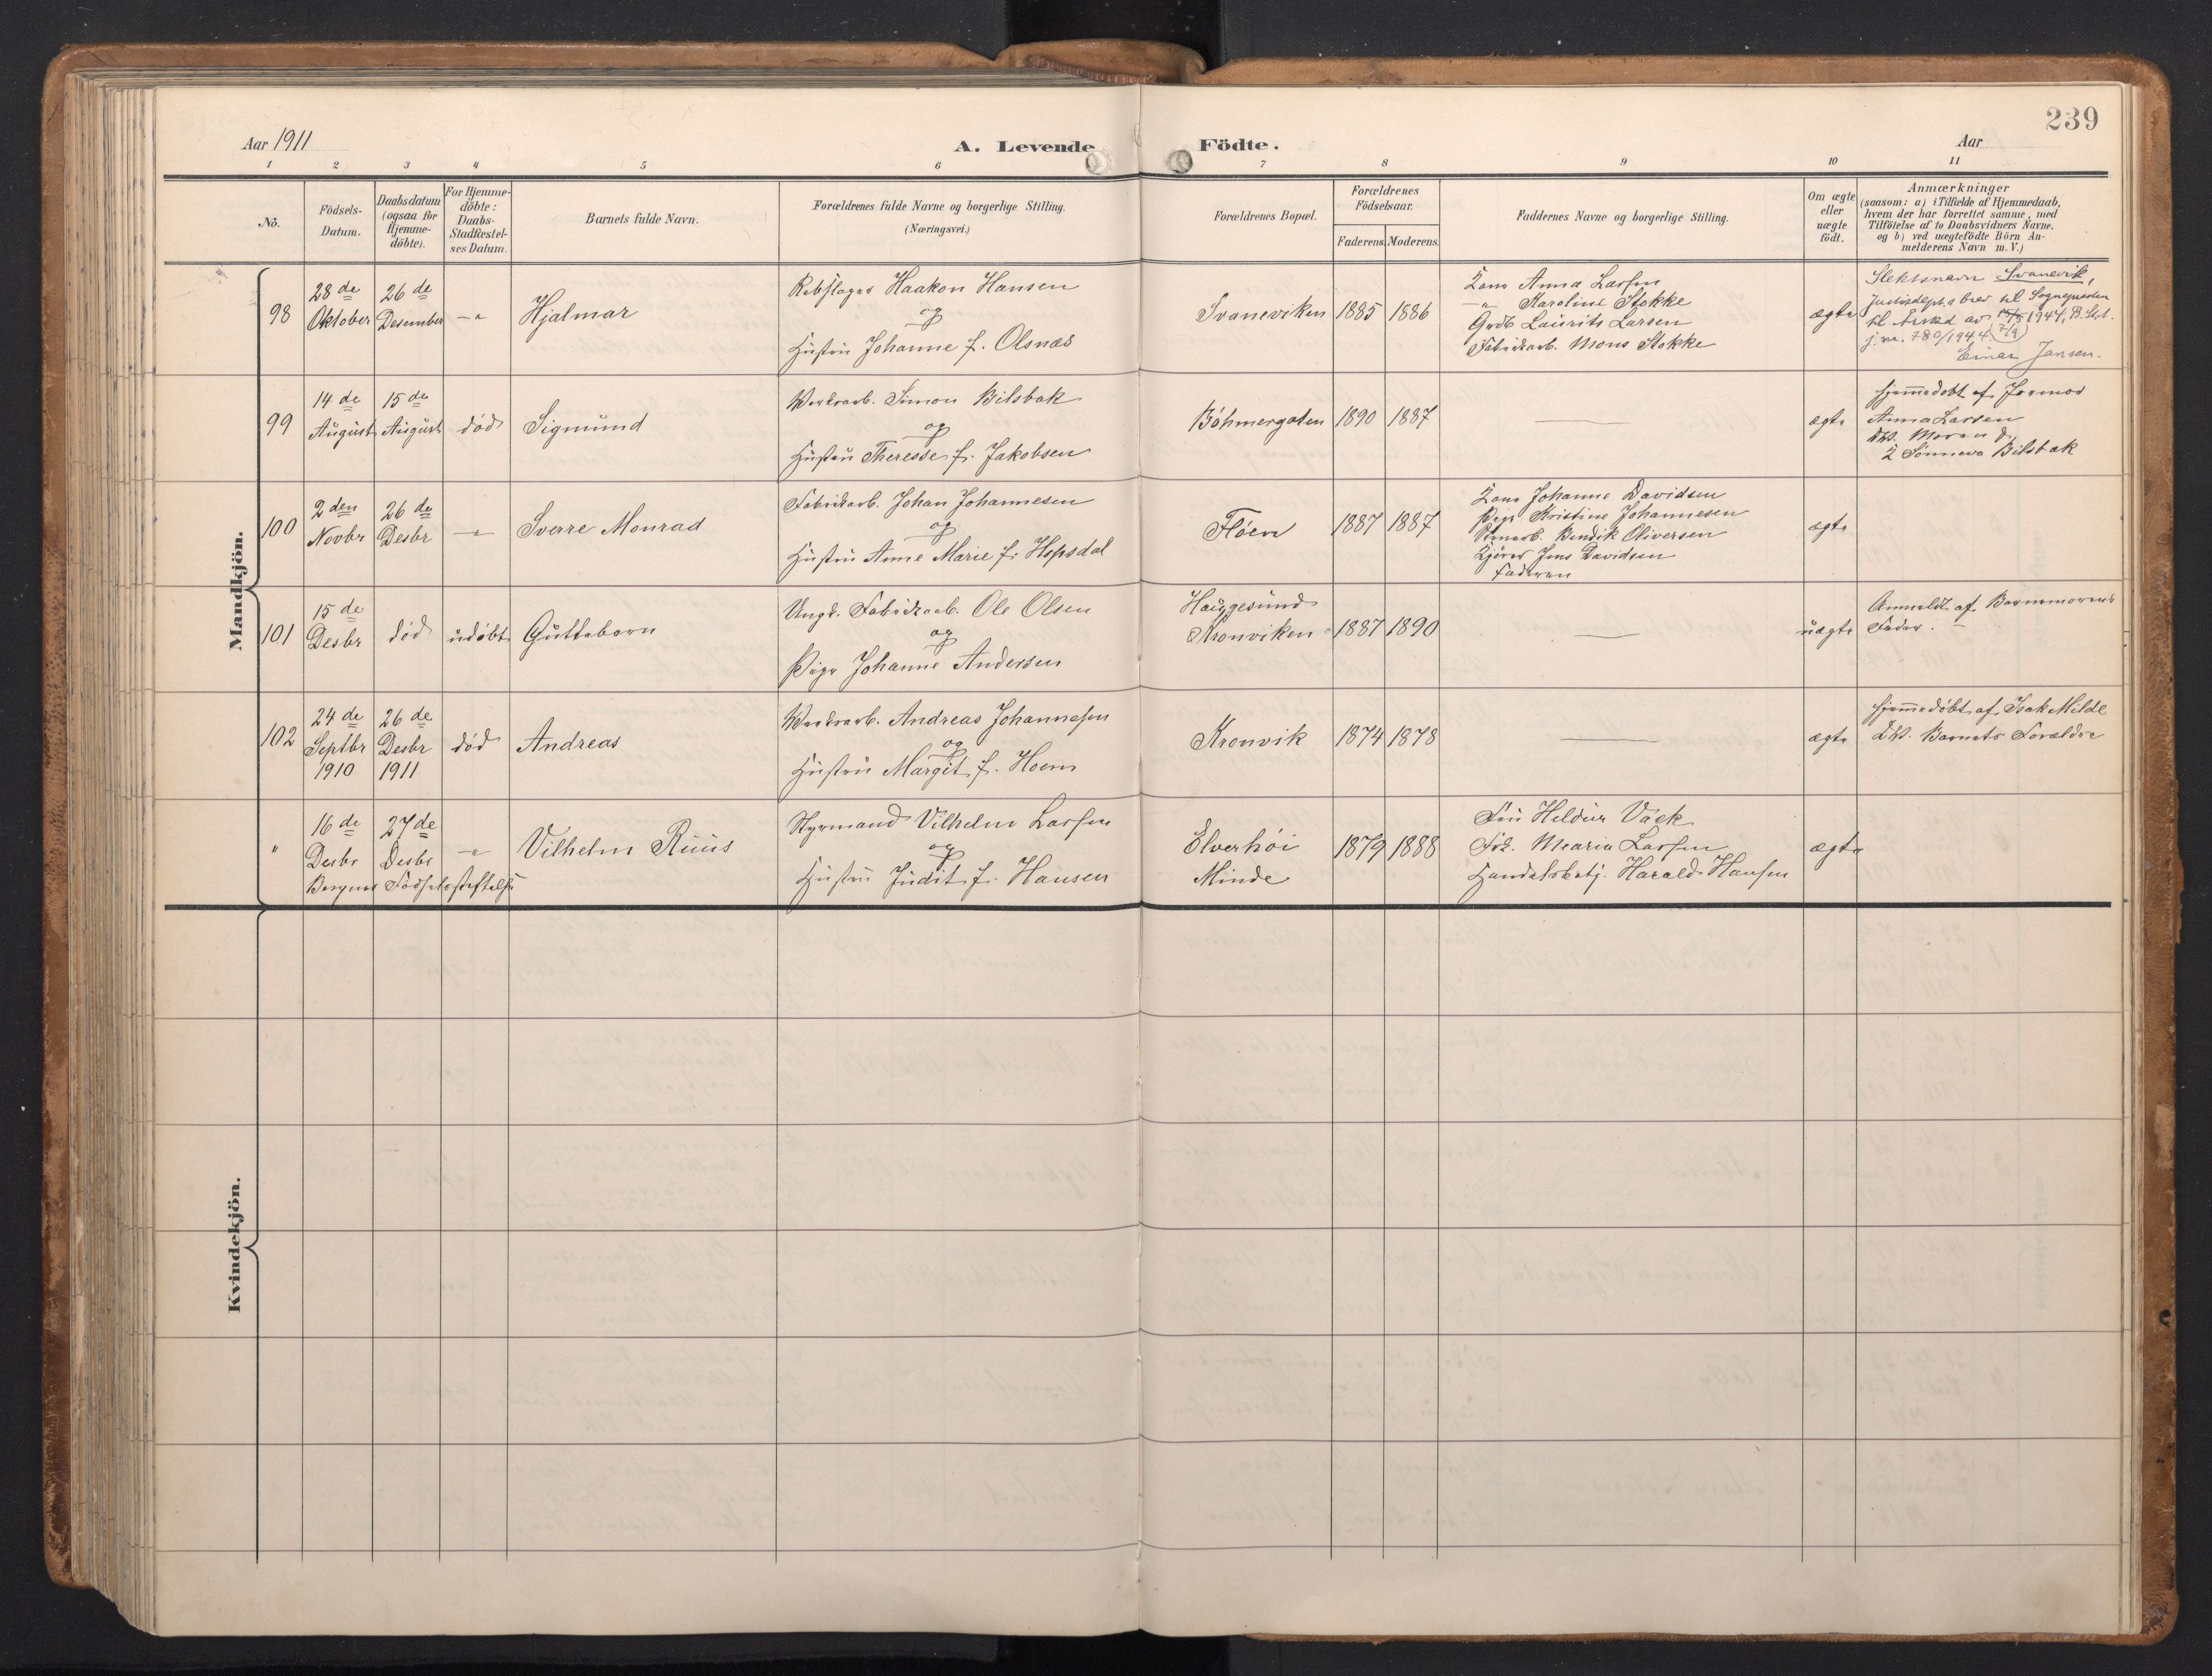 239
Aar 1911
A. Levende Födte.
Aar
1 2 3 4 5 6 7 8 9 10 11
No.
Födsels-
Datum.
Daabsdatum
(ogsaa for
Hjemme-
döbte).
For Hjemme-
döbte:
Daabs-
Stadfæstel-
ses Datum.
Barnets fulde Navn.
Forældrenes fulde Navne og borgerlige Stilling.
(Næringsvei.)
Forældrenes Bopæl.
Forældrenes
Födselsaar.
Faderens. Moderens.
Faddernes Navne og borgerlige Stilling.
Om ægte
eller
uægte
födt.
Anmærkninger
(saasom: a) i Tilfælde af Hjemmedaab,
hvem der har forrettet samme, med
Tilföielse af to Daabsvidners Navne.
og b) ved uægtefödte Börn An-
melderens Navn m. V.)
Mandkjön.
98
28de
Oktober
26de
Desember
—"
Hjalmar
Rebslager Haakon Hansen
og
Hustru Johanne f. Olsnes
Svaneviken
1885 1886
Kone Anna Larsen
—"— Karoline Stokke
Grdb. Laurits Larsen
Fabrikarb. Mons Stokke
ægte
Slektsnavn Svanevik,
Justisdept.s brev til Sognepresten
til Årstad av 15/8 1944, B. Sept.
j. nr. 780/1944 (7/9)
Einar Jansen.
99
14de
August
15de
August
død
Sigmund
Verksarb. Simon Bilsbak
og
Hustru Theresse f. Jakobsen
Bøhmergaten
1890 1887
—
ægte
Hjemmedøbt af Jormor
Anna Larsen
Dv. Moren &
K Sønneva Bilsbak
100
2den
Novbr
26de
Desbr
—"—
Sverre Monrad
Fabrikarb. Johan Johannesen
og
Hustru Anne Marie f. Hopsdal
Fløen
1887 1887
Kone Johanne Davidsen
Pige Kristine Johannesen
Stenarb. Bendik Oliversen
Kjører Jens Davidsen
Faderen
ægte
101
15de
Desbr
død
udøbt
Guttebarn
Ungk. Fabrikarb. Ole Olsen
og
Pige Johanne Andersen
Haugesund
Kronviken
1887 1890
—
uægte
Anmeldt af Barnemorens
Fader.
102
24de
Septbr
1910
26de
Desbr
1911
død
Andreas
Verksarb. Andreas Johannesen
og
Hustru Margit f. Hoem
Kronvik
1874 1878
—
ægte
Hjemmedøbt af Isak Milde
Dv. Barnets Forældre
"
16de
Desbr
27de
Desbr
—"—
Bergens Fødselsstiftelse
Vilhelm Ruus
Styrmand Vilhelm Larsen
og
Hustru Judit f. Hansen
Elverhøi
Minde
1879 1888
Fru Heldur Vack
Frk. Maria Larsen
Handelsbetj. Harald Hansen
ægte
Kvindekjön.